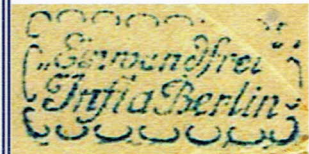 „Einwandfrei"
Infla Berlin